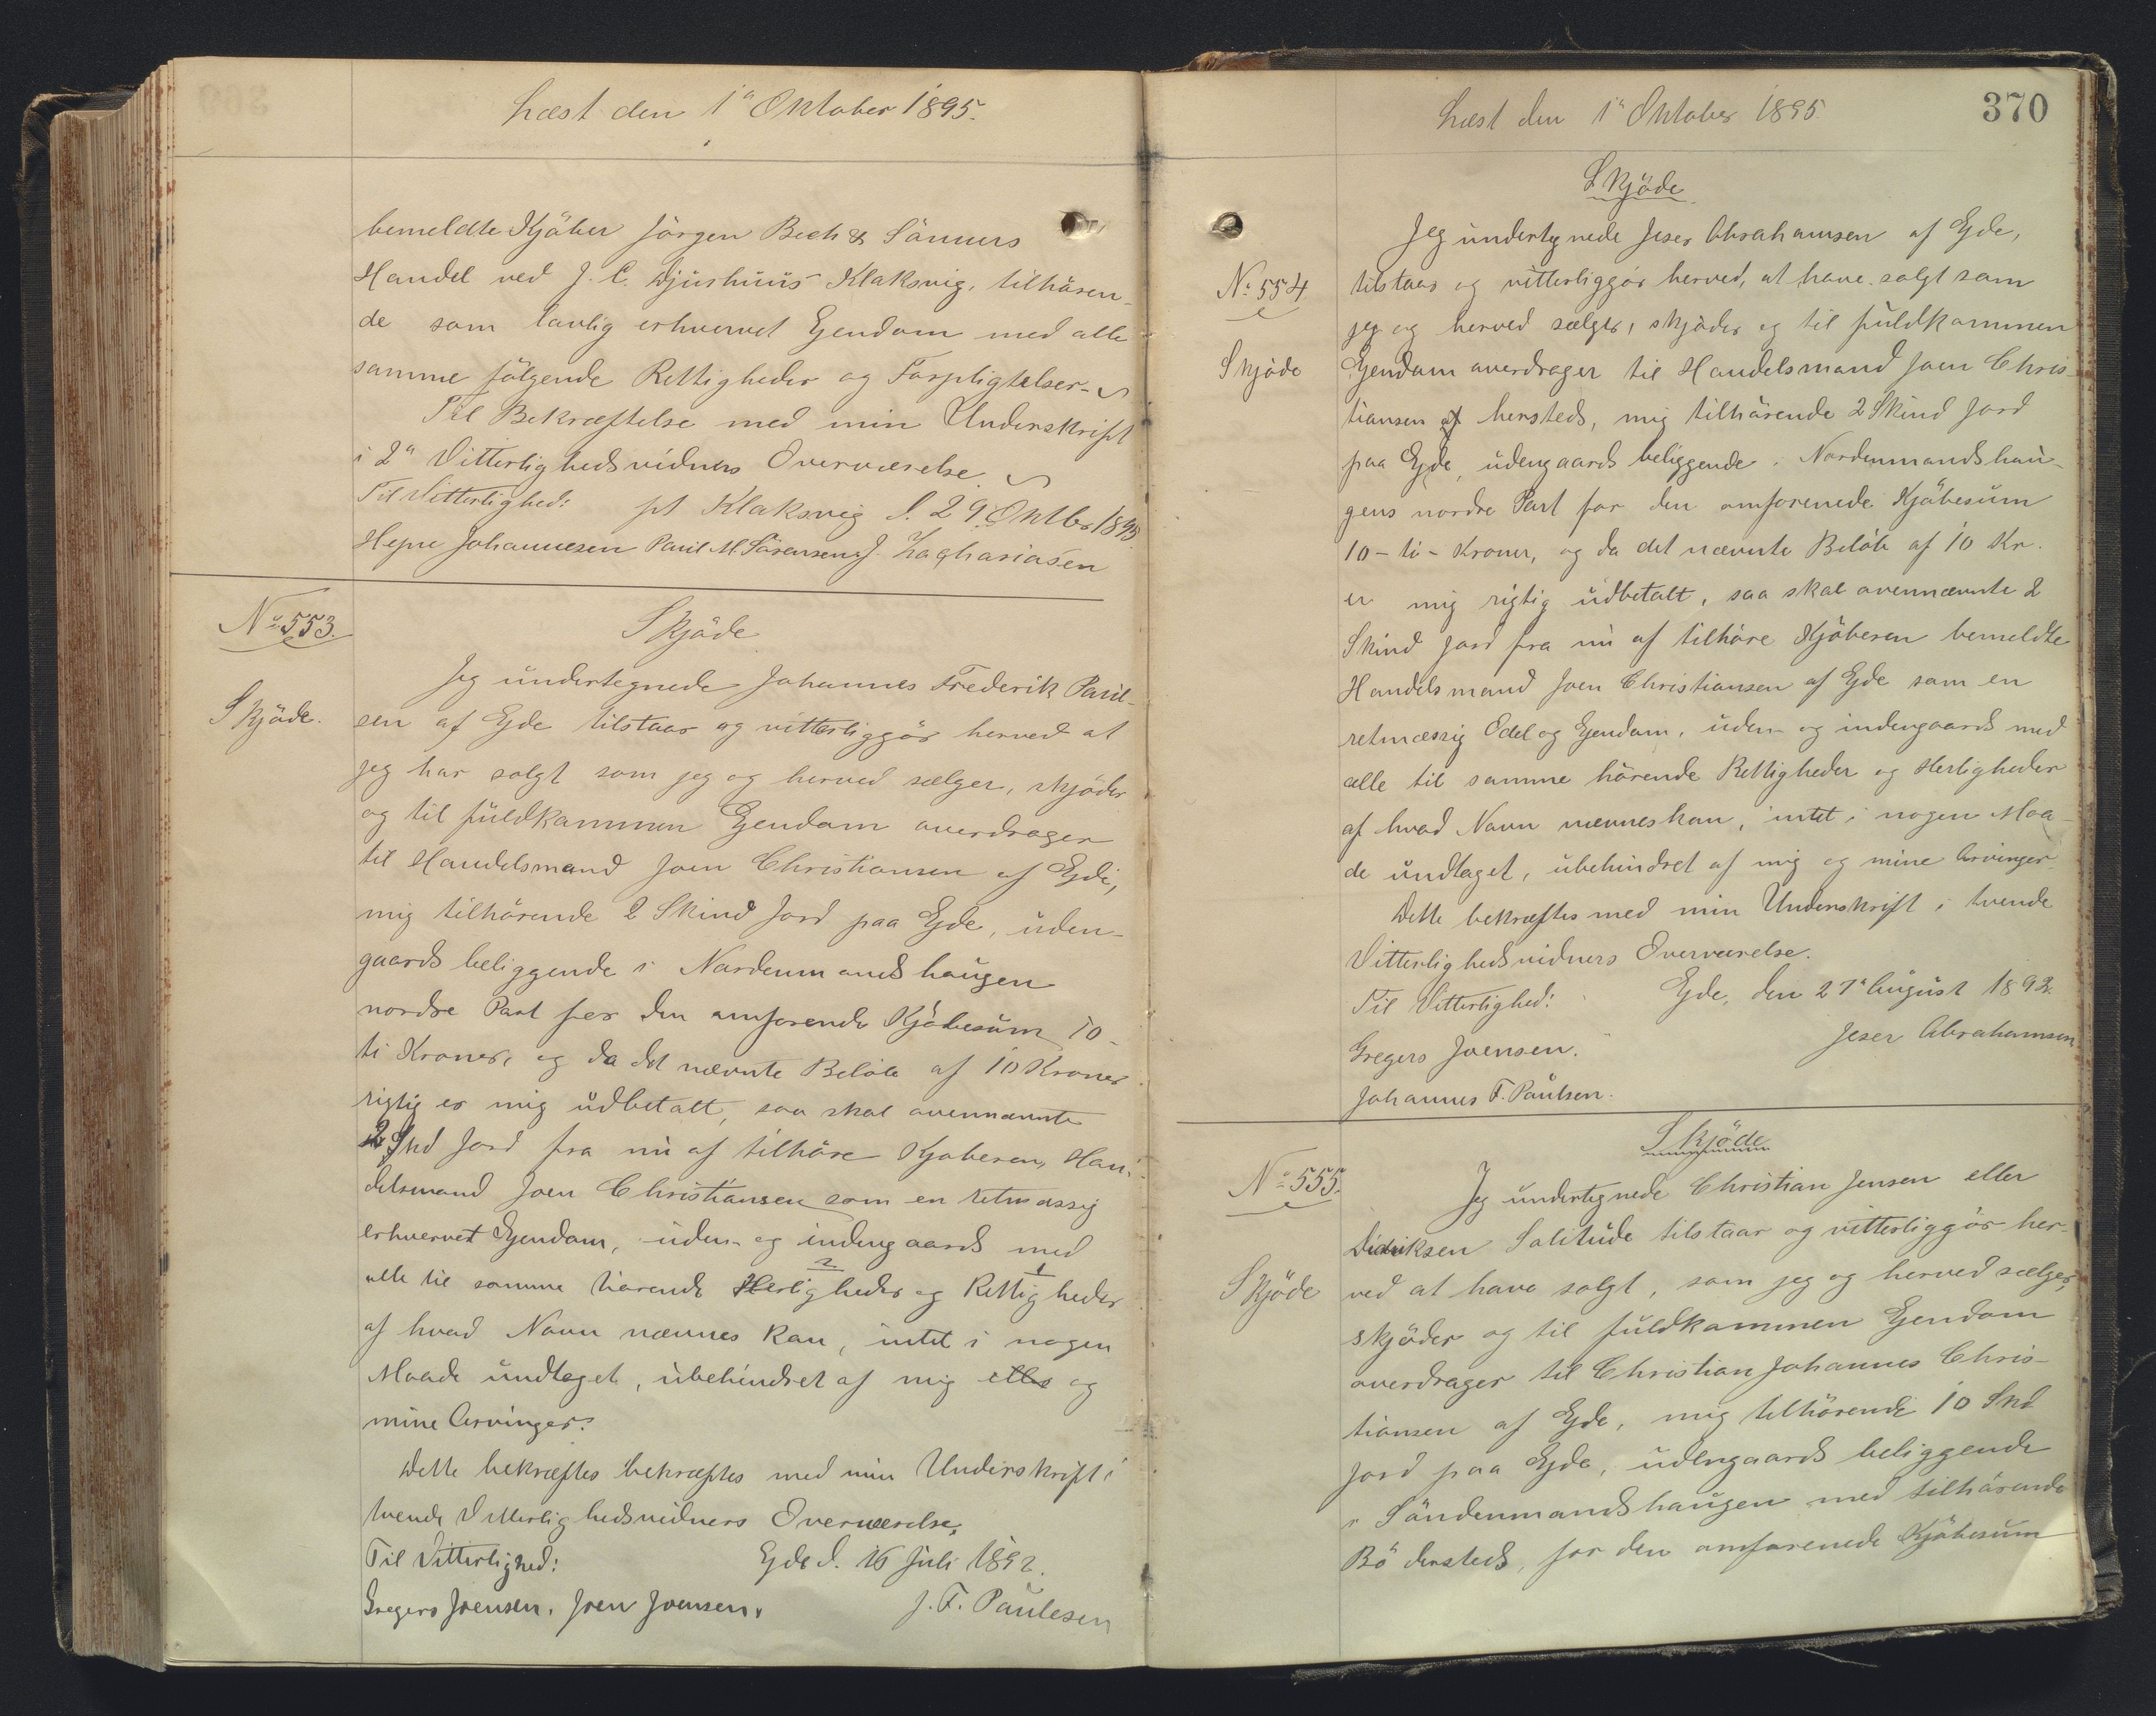 Læst den 1ª Oktober 1895.
bemeldte Kjöber Jörgen Bech & Sönners
Handel ved J. C. Djurhuus Klaksvig, tilhören-
de som lovlig erhvervet Ejendom med alle
samme fölgende Rettigheder og Forpligtelser.
Til Bekræftelse med min Underskrift
i 2ª Vitterlighedsvidners Overværelse.
Til Vitterlighed: pt Klaksvig d. 29. Oktbr 1893
Johannesen Paul M. Sörensen J. Zachariasen
Nº 553.
Skjöde
Jeg undertegnede Johannes Frederik Paul-
Skjöde.
sen af Ejde tilstaar og vitterliggör herved at
jeg har solgt som jeg og herved sælger, skjöder
og til fuldkommen Ejendom overdrager
til Handelsmand Joen Christiansen af Ejde,
mig tilhörende 2 Skind Jord paa Ejde, uden-
gaards beliggende i Nordenmandshaugen
nordre Part for den omforende Kjöbesum 10-
ti Kroner, og da det nævnte Belöb af 10 Kroner
rigtig er mig udbetalt, saa skal ovennævnte
2 Skd Jord fra nu af tilhöre Kjöberen, Han-
delsmand Joen Christiansen som en retmæssig
erhvervet Ejendom, uden- og indengaards med
alle til samme hörende Herligheder og Rettigheder
af hvad Navn nævnes kan, intet i nogen
Maade undtaget, ubehindret af mig eller og
mine Arvinger.
Dette bekræftes bekræftes med min Underskrift i
tvende Vitterlighedsvidners Overværelse,
Til Vitterlighed: Ejde d. 16 Juli 1892.
Gregers Joensen. Joen Joensen. J. F. Paulesen
Læst den 1ª Oktober 1895
370
Skjöde
Jeg undertegnede Jeser Abrahamsen af Ejde,
Nº 554
tilstaar og vitterliggör herved, at have solgt som
jeg og herved sælger, skjöder og til fuldkommen
Skjöde
Ejendom overdrager til Handelsmand Joen Chris-
tiansen af hersteds, mig tilhörende 2 Skind Jord
paa Ejde, udengaards beliggende i Nordenmandshau-
gens nordre Part for den omforenede Kjöbesum
10 - ti - Kroner, og da det nævnte Belöb af 10 Kr.
er mig rigtig udbetalt, saa skal ovennævnte 2
Skind Jord fra nu af tilhöre Kjöberen bemeldte
Handelsmand Joen Christiansen af Ejde som en
retmæssig Odel og Ejendom, uden- og indengaards med
alle til samme hörende Rettigheder og Herligheder
af hvad Navn nævnes kan, intet i nogen Maa-
de undtaget, ubehindret af mig og mine Arvinger.
Dette bekræftes med min Underskrift i tvende
Vitterlighedsvidners Overværelse.
Til Vitterlighed: Ejde, den 27ª August 1892.
Gregers Joensen. Jeser Abrahamsen
Johannes F. Paulsen.
Skjöde
Nº 555.
Jeg undertegnede Christian Jensen eller
Didriksen Solitude tilstaar og vitterliggör her-
Skjöde
ved at have solgt, som jeg og herved sælger,
skjöder og til fuldkommen Ejendom
overdrager til Christian Johannes Chris-
tiansen af Ejde, mig tilhörende 10 Skd
Jord paa Ejde, udengaards beliggende
i Söndenmandshaugen med tilhörende
Bö dersteds, for den omforenede Kjöbesum